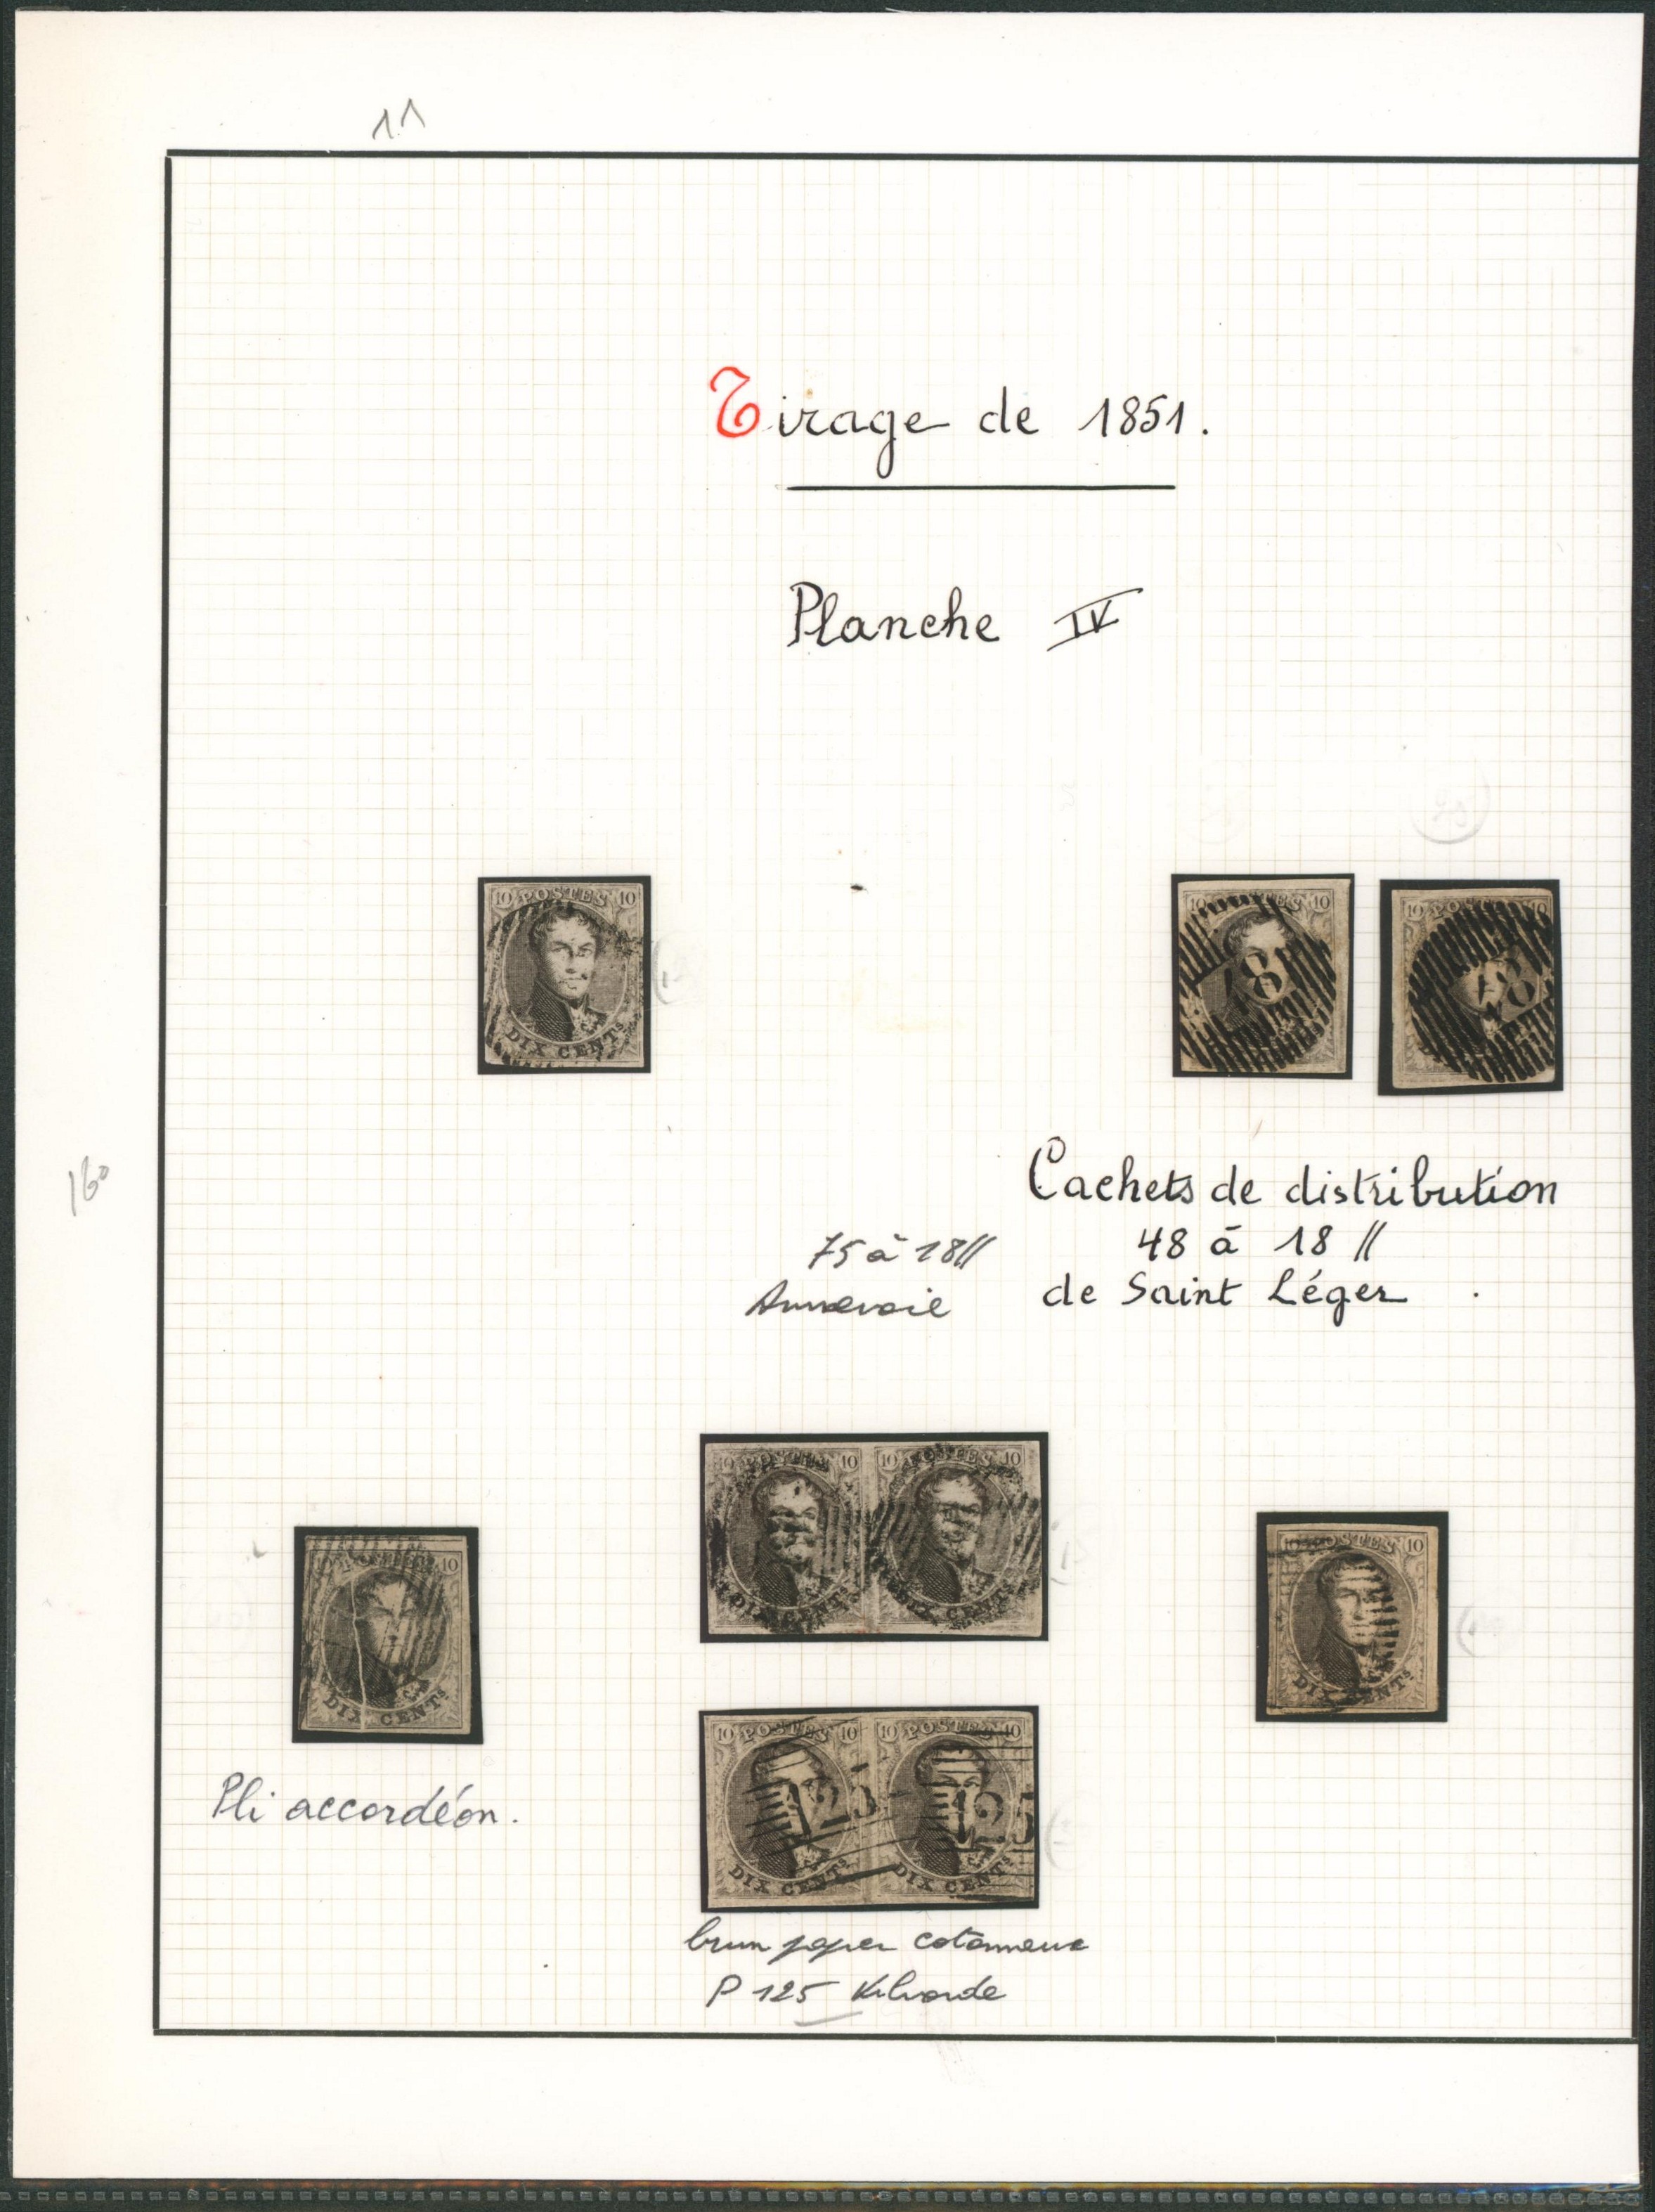 11
Tirage de 1851.
Planche IV
10 POSTES 10
DIX CENTs
10 TES 10
18
10 POS 10
48
160
Cachets de distribution
75 à 18 //
48 à 18 //
de Saint Léger
10 POSTES 10 10 POSTES 10
DIX CENTs DIX CENTs
10
DIX CENTs
10 POSTES 10
DIX CENTs
Pli accordéon.
10 POSTES 10 10 POSTES 10
125 125
DIX CENTs DIX CENTs
brun papier cotonneux
P 125 Vilvorde